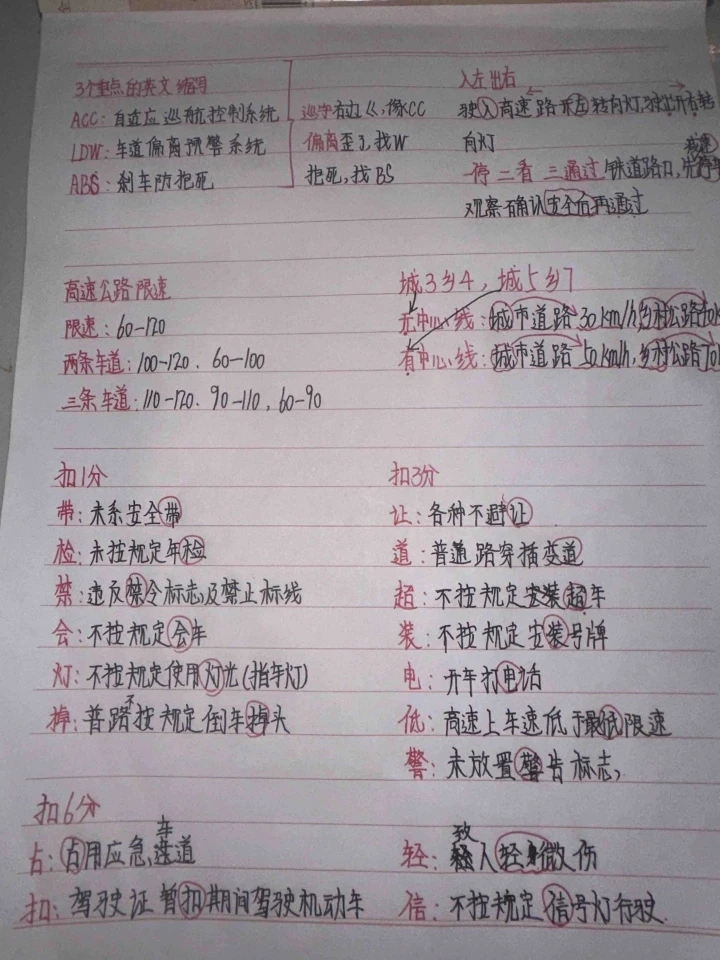 3个重点的英文缩写
ACC：自适应巡航控制系统
LDW：车道偏离预警系统
ABS：刹车防抱死
巡字右边巛，像CC
偏离歪了，找W
抱死，找BS
入左出右
驶入高速路开左转向灯，驶出开右转
向灯
一停 二看 三通过 铁道路口，先停车
减速
观察确认安全后再通过
高速公路限速
限速：60-120
两条车道：100-120．60-100
三条车道：110-120．90-110，60-90
城3乡4，城5乡7
无中心线：城市道路30km/h，乡村公路40k
有中心线：城市道路50km/h，乡村公路70k
扣1分
带：未系安全带
检：未按规定年检
禁：违反禁令标志及禁止标线
会：不按规定会车
灯：不按规定使用灯光(指车灯)
掉：普路不按规定倒车掉头
扣3分
让：各种不避让
道：普通路穿插变道
超：不按规定超车
装：不按规定安装号牌
电：开车打电话
低：高速上车速低于最低限速
警：未放置警告标志，
扣6分
占：占用应急车道
扣：驾驶证暂扣期间驾驶机动车
轻：致人轻微伤
信：不按规定信号灯行驶.